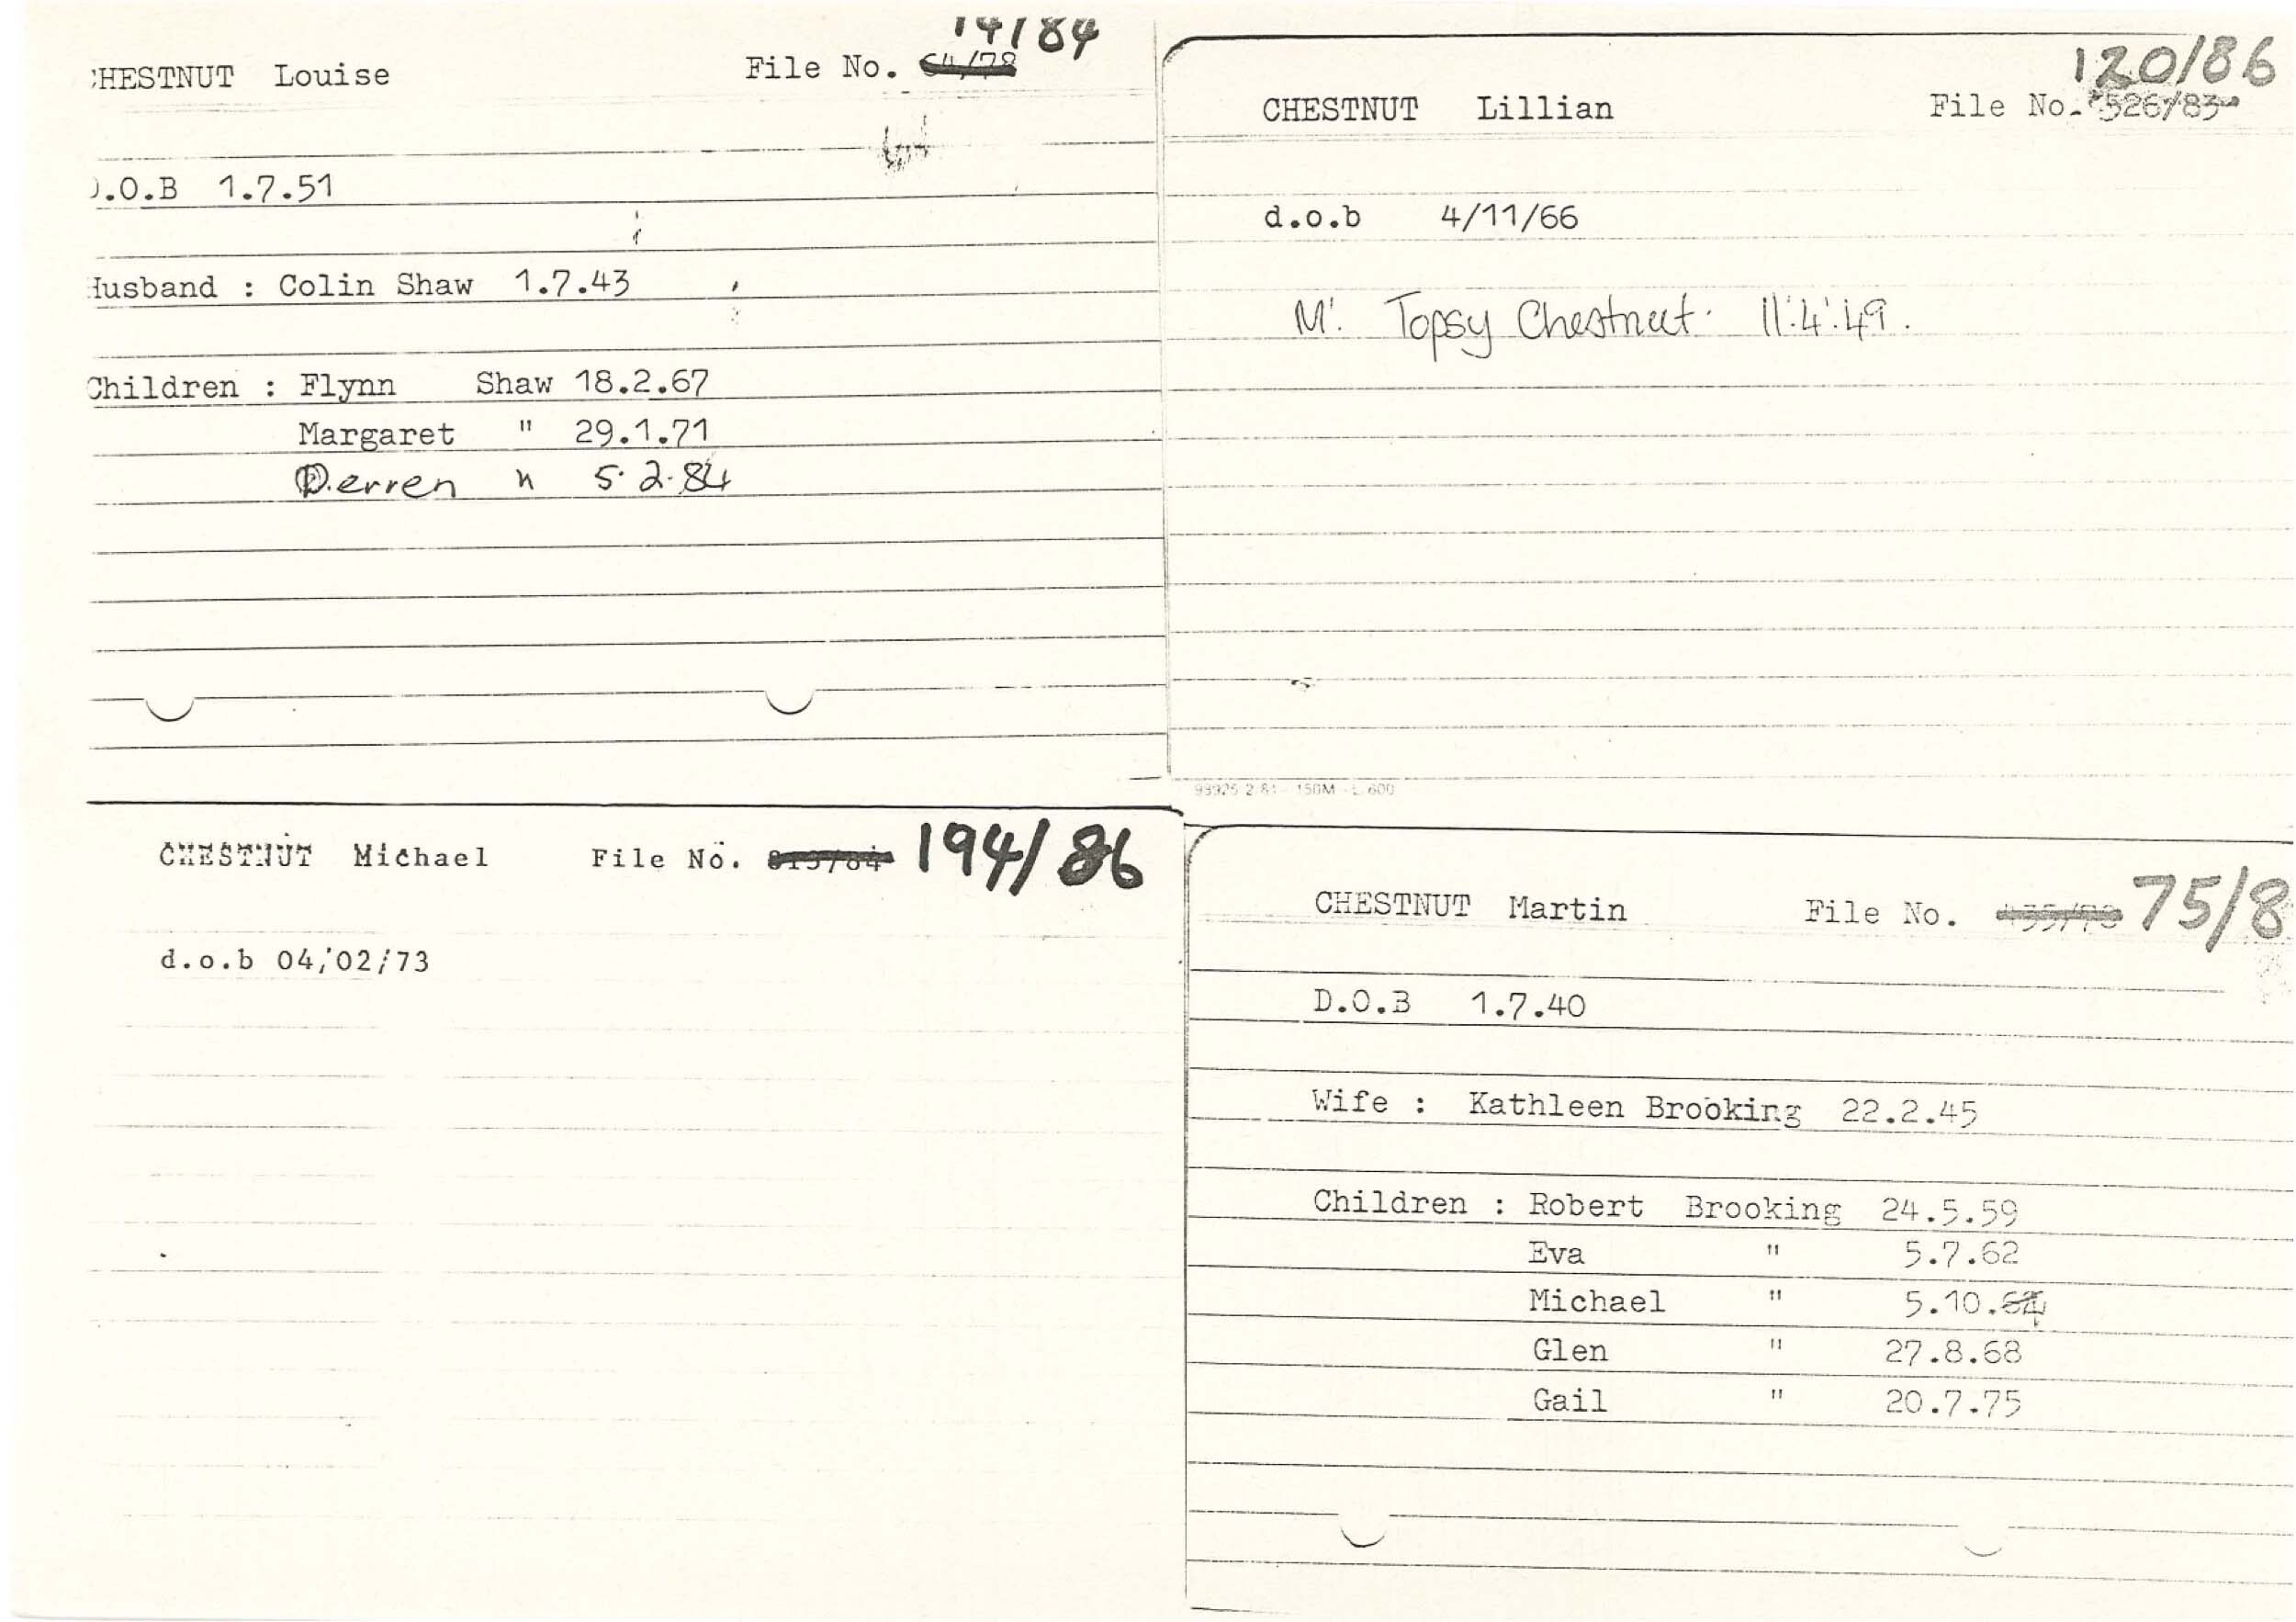 14/84
CHESTNUT Louise File No. 64/78
D.O.B 1.7.51
Husband : Colin Shaw 1.7.43
Children : Flynn Shaw 18.2.67
Margaret " 29.1.71
Derren " 5.2.84
120/86
CHESTNUT Lillian File No. 526/83
d.o.b 4/11/66
M. Topsy Chestnut. 11.4.49.
CHESTNUT Michael File No. 194/86
d.o.b 04/02/73
CHESTNUT Martin File No. 75/8
D.O.B 1.7.40
Wife : Kathleen Brooking 22.2.45
Children : Robert Brooking 24.5.59
Eva " 5.7.62
Michael " 5.10.64
Glen " 27.8.68
Gail " 20.7.75